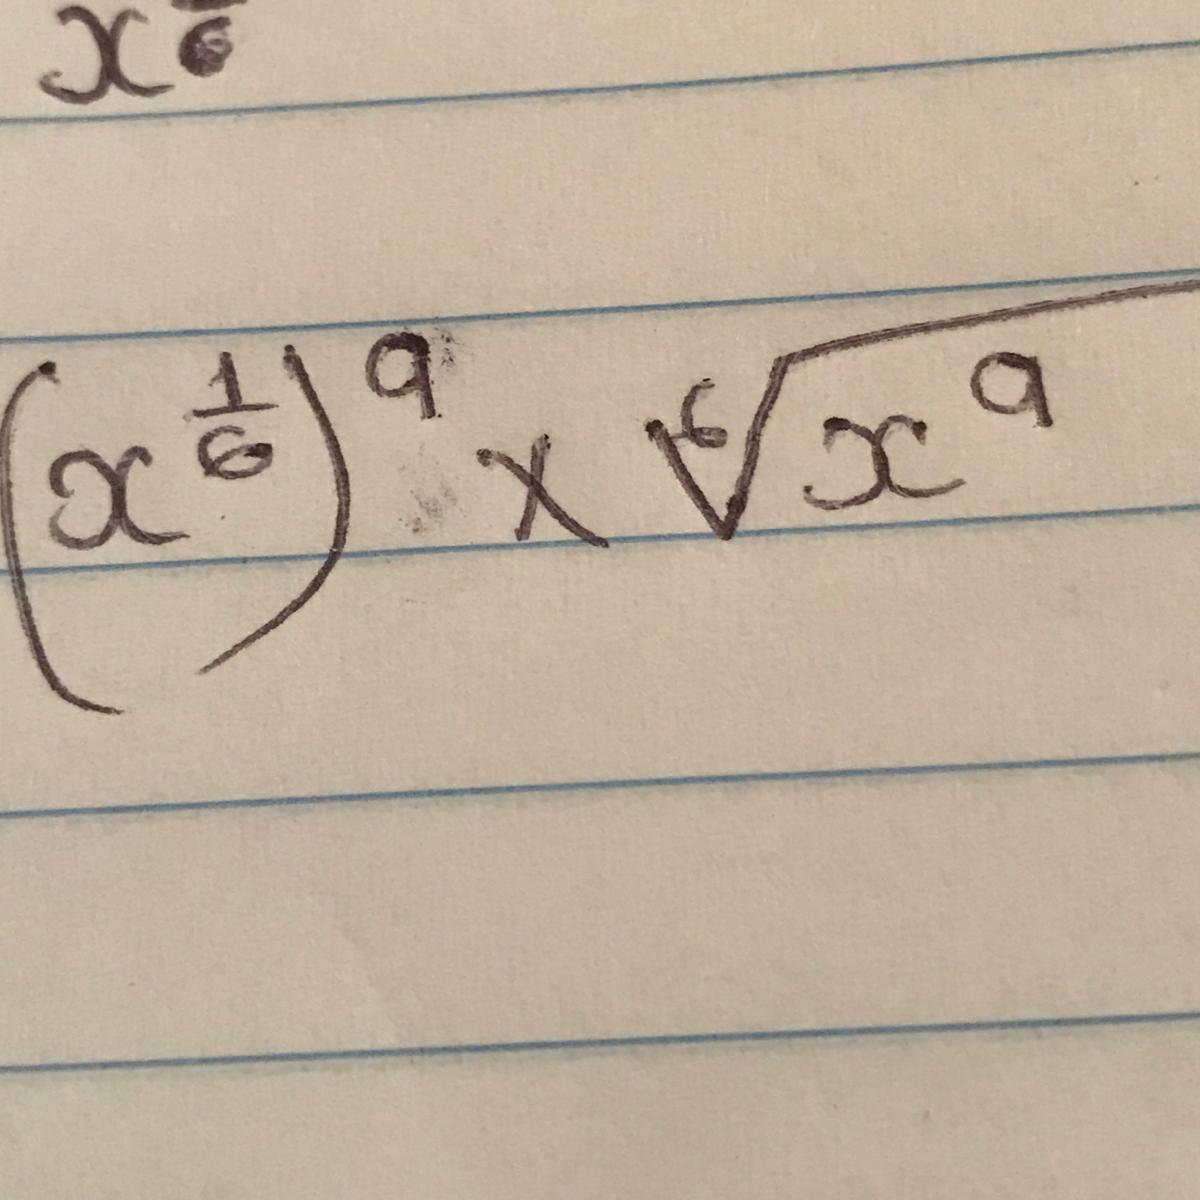 x^6
(x^{1/6})^9 × ⁶√x^9